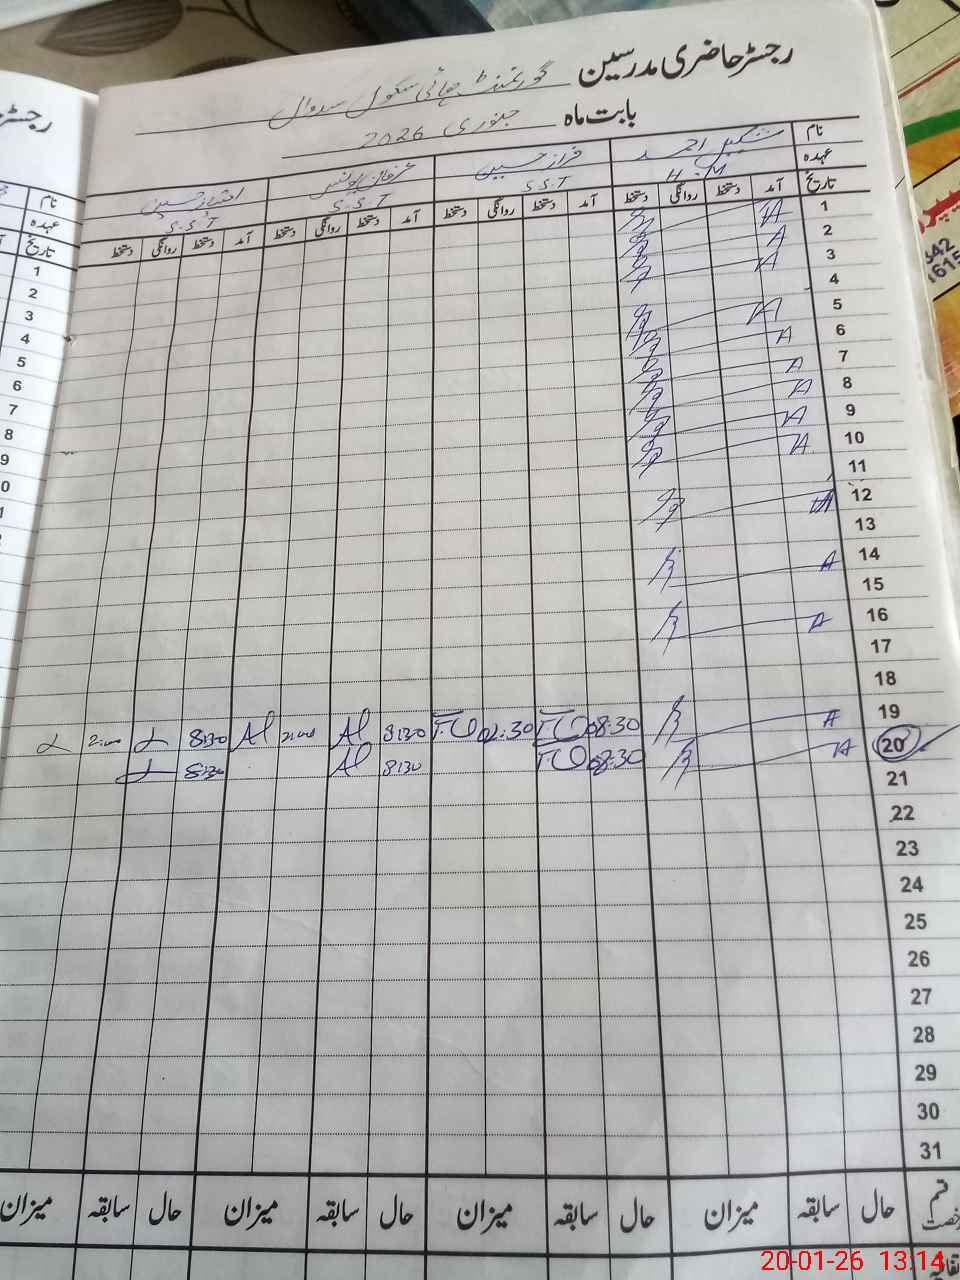 رجسٹر حاضری مدرسین گورنمنٹ ہائی سکول سروال
بابت ماہ جنوری 2026
نام شکیل احمد فراز حسین عرفان یونس امتیاز حسین
عہدہ H.M S.S.T S.S.T S.S.T
تاریخ آمد دستخط روانگی دستخط آمد دستخط روانگی دستخط آمد دستخط روانگی دستخط آمد دستخط روانگی دستخط
1 A
2 A
3 A
4
5 A
6 A
7 A
8 A
9 A
10 A
11
12 A
13
14 A
15
16 A
17
18
19 A 08:30 02:30 8:30 2:00 8:30 2:00
20 A 08:30 8:30 8:30
21
22
23
24
25
26
27
28
29
30
31
قسم رخصت حال سابقہ میزان حال سابقہ میزان حال سابقہ میزان حال سابقہ میزان
اتفاقیہ
نام
عہدہ
تاریخ
1
2
3
4
5
6
7
8
9
342
1615
20-01-26 13:14